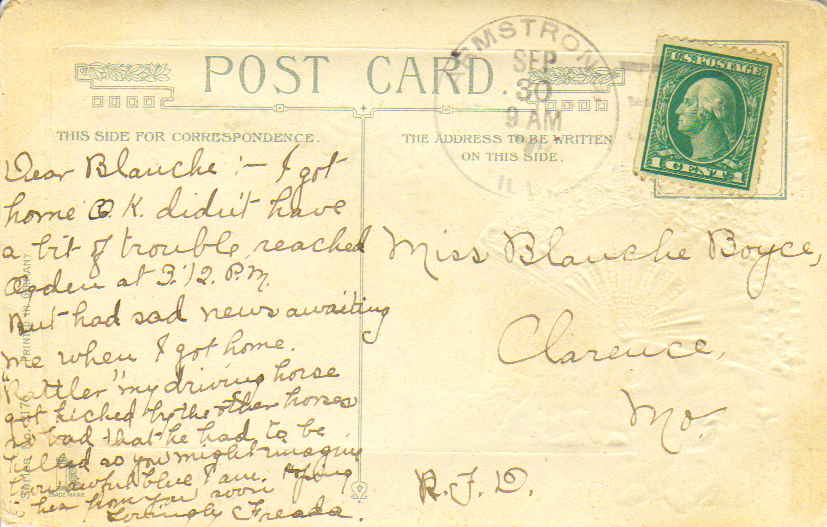 POST CARD
THIS SIDE FOR CORRESPONDENCE.
THE ADDRESS TO BE WRITTEN
ON THIS SIDE.
ARMSTRONG
SEP
30
9 AM
ILL.
U.S. POSTAGE
1 CENT 1
Dear Blanche :- I got
home O.K. didn't have
a bit of trouble, reached
Ogden at 3:12. P.M.
But had sad news awaiting
me when I got home.
"Rattler" my driving horse
got kicked by the other horses
so bad that he had to be
killed so you might imagine
how awful blue I am. Hoping
hear from you soon
Lovingly Freada.
Miss Blanche Boyce,
Clarence,
Mo.
R.F.D.
PRINTED IN GERMANY
TRADE MARK